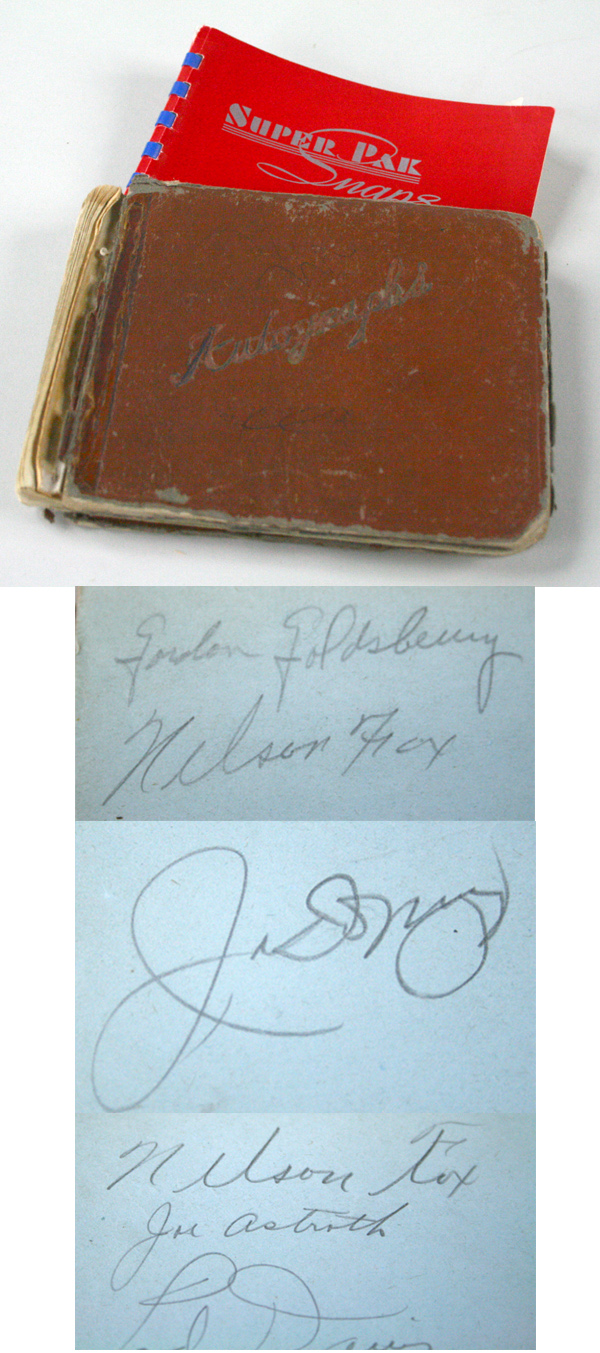 SUPER PAK
Snaps
Autographs
Gordon Goldsberry
Nelson Fox
Nelson Fox
Joe Astroth
Davis